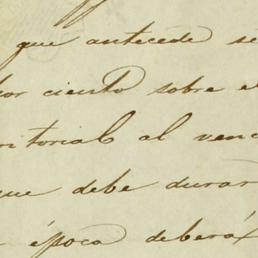 que antecede se
por ciento sobre e
ritorial al venc
que debe durar
época deberá